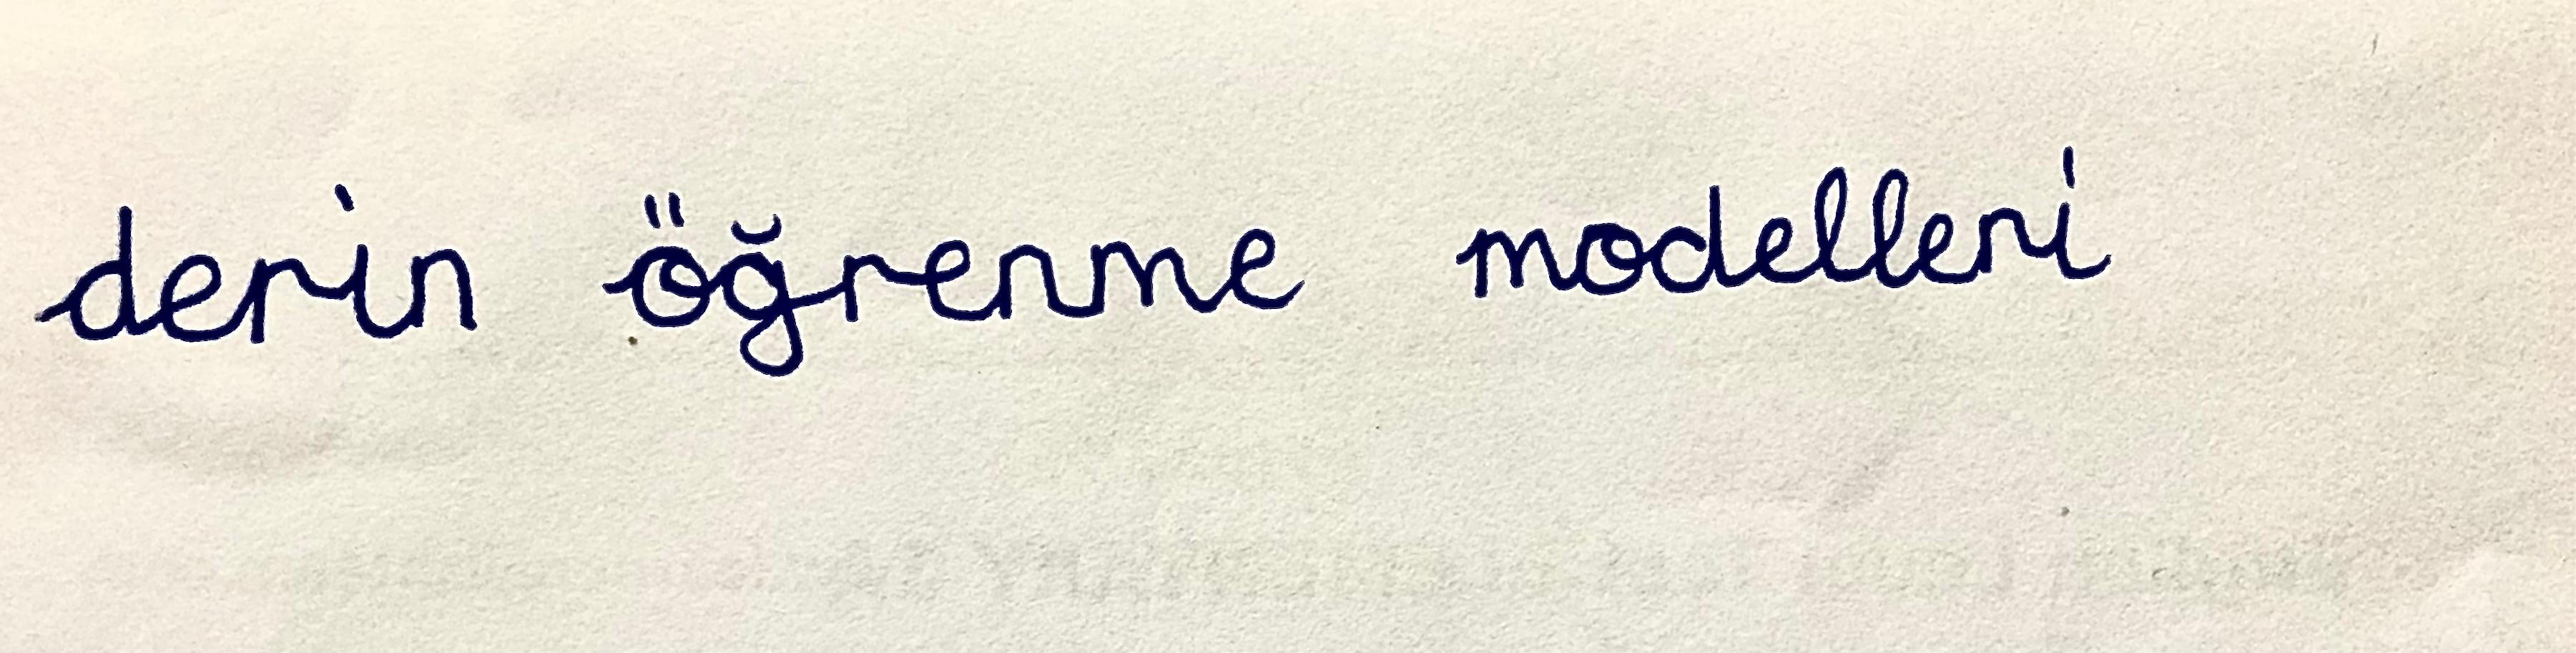 derin öğrenme modelleri